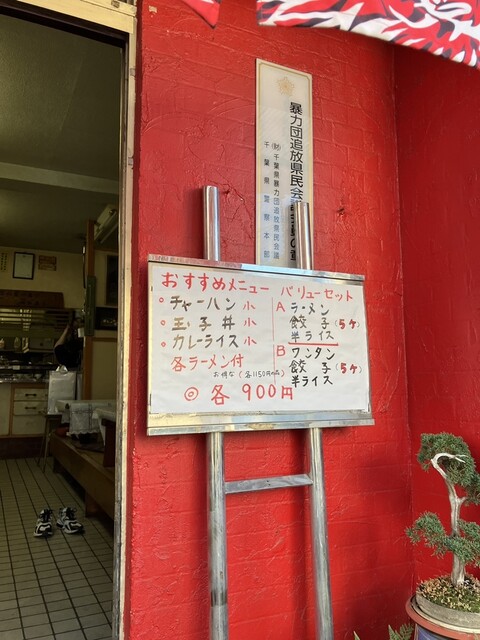 暴力団追放県民会
(財)千葉県暴力団追放県民会議
千葉県警察本部
おすすめメニュー
○チャーハン 小
○玉子丼 小
○カレーライス 小
各ラーメン付
お得な(各1150円の品)
◎各900円
バリューセット
A ラーメン
餃子(5ヶ)
半ライス
B ワンタン
餃子(5ヶ)
半ライス